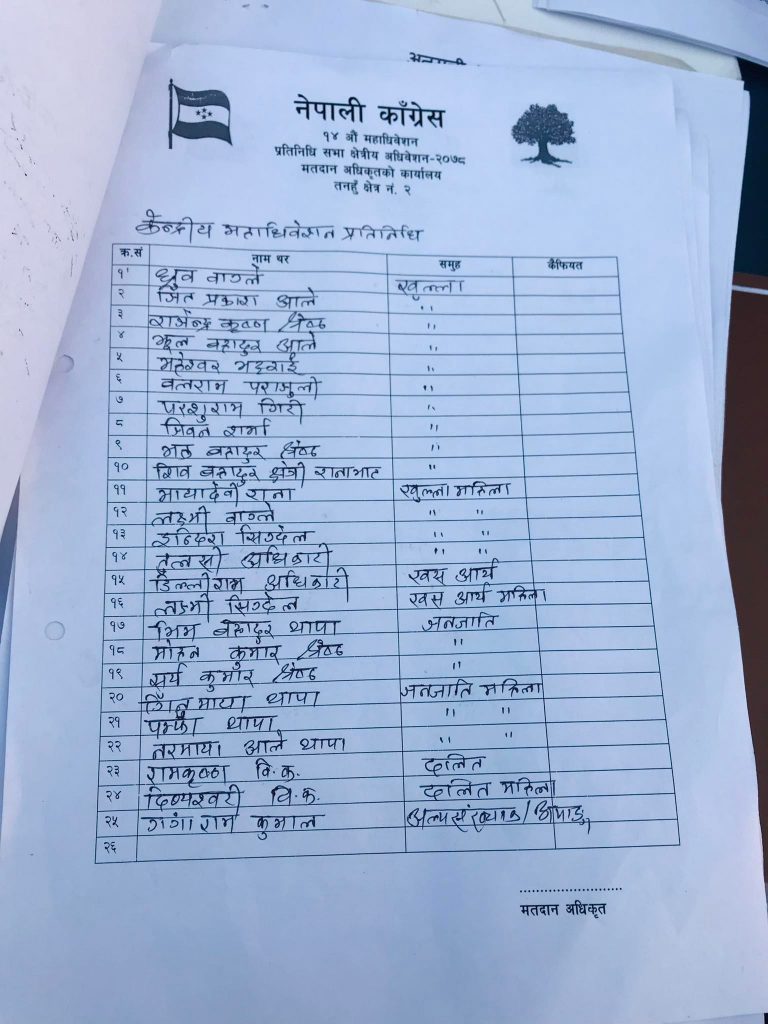 नेपाली काँग्रेस
१४ औं महाधिवेशन
प्रतिनिधि सभा क्षेत्रीय अधिवेशन-२०७८
मतदान अधिकृतको कार्यालय
तनहुँ क्षेत्र नं. २
केन्द्रीय महाधिवेशन प्रतिनिधि
क्र.सं नाम थर समुह कैफियत
१ ध्रुव वाग्ले खुल्ला
२ जित प्रकाश आले "
३ राजेन्द्र कृष्ण श्रेष्ठ "
४ झुल बहादुर आले "
५ महेश्वर भट्टराई "
६ बलराम पराजुली "
७ परशुराम गिरी "
८ जिवन शर्मा "
९ भक्त बहादुर श्रेष्ठ "
१० शिव बहादुर क्षेत्री रानाभाट "
११ मायादेवी राना खुल्ला महिला
१२ लक्ष्मी वाग्ले " "
१३ इन्दिरा सिग्देल " "
१४ तुलसी अधिकारी " "
१५ डिल्लीराम अधिकारी खस आर्य
१६ लक्ष्मी सिग्देल खस आर्य महिला
१७ भिम बहादुर थापा जनजाति
१८ मोहन कुमार श्रेष्ठ "
१९ सूर्य कुमार श्रेष्ठ "
२० माया थापा जनजाति महिला
२१ पम्फा थापा " "
२२ तरमाया आले थापा " "
२३ रामकृष्ण वि.क. दलित
२४ दिव्यश्वरी वि.क. दलित महिला
२५ गंगाराम कुमाल अल्पसंख्यक/अपाङ्ग
२६
मतदान अधिकृत